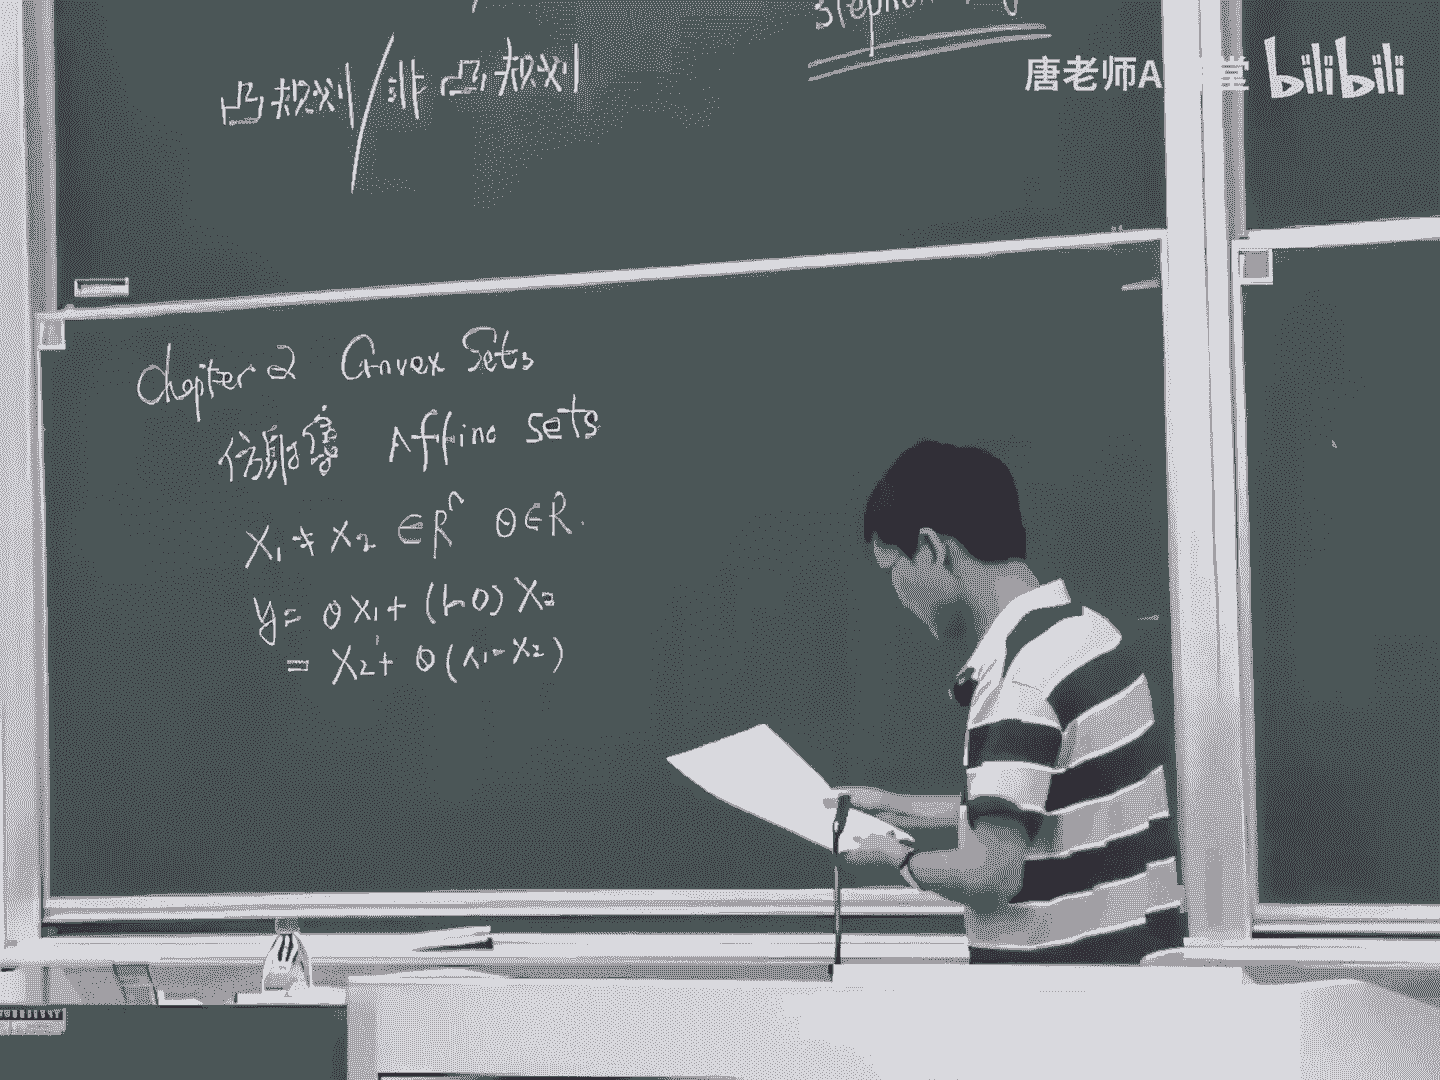 凸规划/非凸规划
唐老师A 堂 bilibili
Chapter 2 Convex Sets
仿射集 Affine sets
X₁ ≠ X₂ ∈ Rⁿ θ ∈ R.
y = θ X₁ + (1-θ) X₂
= X₂ + θ (X₁ - X₂)